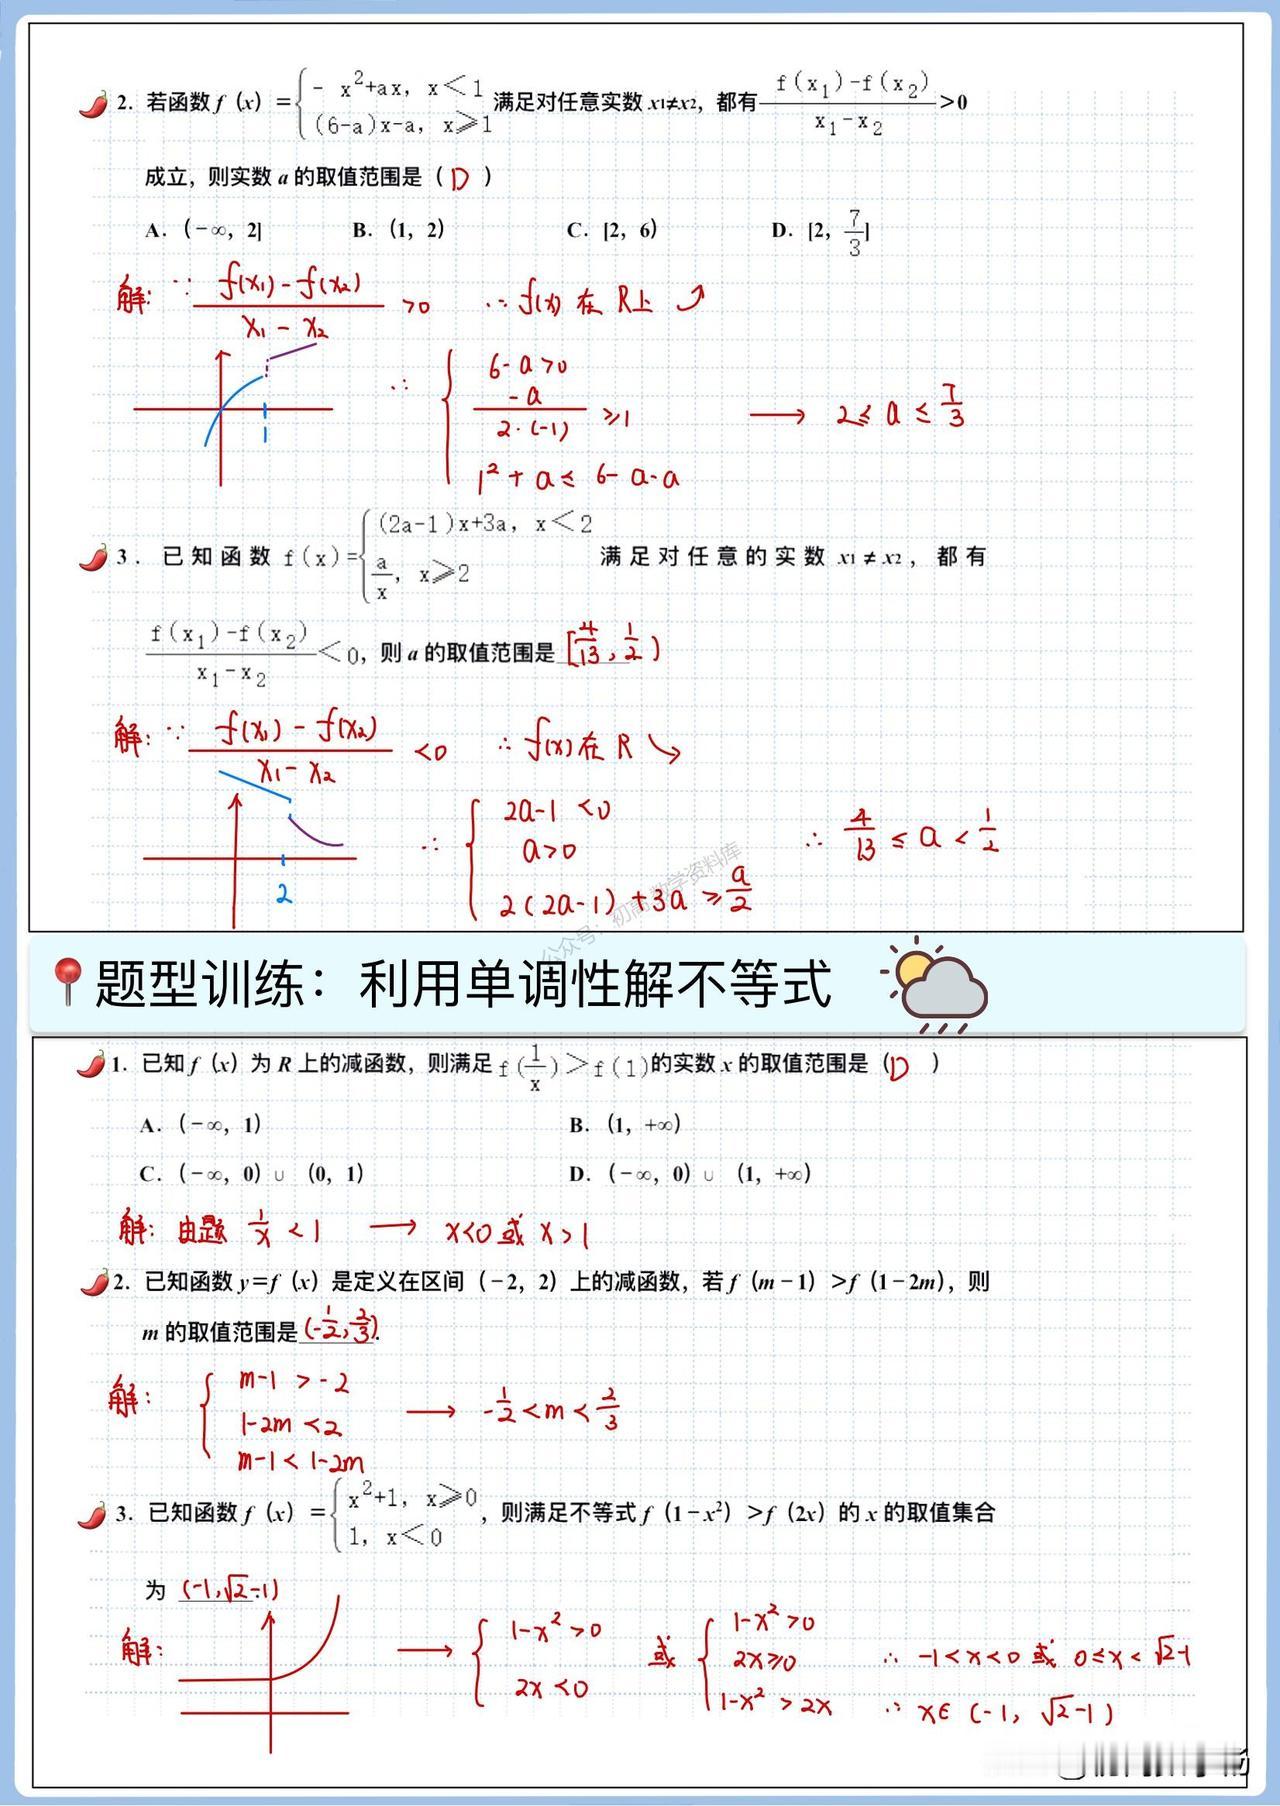 2. 若函数 f（x）={-x²+ax, x<1 (6-a)x-a, x≥1 满足对任意实数 x₁≠x₂，都有 f(x₁)-f(x₂)/x₁-x₂ >0
成立，则实数 a 的取值范围是（ D ）
A.（-∞，2] B.（1，2） C. [2，6） D. [2，7/3]
解：∵ f(x₁)-f(x₂)/x₁-x₂ >0 ∴ f(x) 在 R上 ↗
1
∴ { 6-a>0
-a/2·(-1) ≥1 → 2≤a≤7/3
1²+a≤6-a-a
3. 已知函数 f(x)={(2a-1)x+3a, x<2 a/x, x≥2 满足对任意的实数 x₁≠x₂，都有
f(x₁)-f(x₂)/x₁-x₂ <0，则 a 的取值范围是 [4/13, 1/2)
解：∵ f(x₁)-f(x₂)/x₁-x₂ <0 ∴ f(x)在 R ↘
2
∴ { 2a-1<0
a>0 ∴ 4/13≤a<1/2
2(2a-1)+3a≥a/2
公众号：初高中数学资料库
题型训练：利用单调性解不等式
1. 已知 f（x）为 R 上的减函数，则满足 f(1/x)>f(1)的实数 x 的取值范围是（ D ）
A.（-∞，1） B.（1，+∞）
C.（-∞，0）∪（0，1） D.（-∞，0）∪（1，+∞）
解：由题 1/x<1 → x<0 或 x>1
2. 已知函数 y=f（x）是定义在区间（-2，2）上的减函数，若 f（m-1）>f（1-2m），则
m 的取值范围是 (-1/2, 2/3).
解：{ m-1>-2
1-2m<2 → -1/2<m<2/3
m-1<1-2m
3. 已知函数 f（x）={x²+1, x≥0 1, x<0，则满足不等式 f（1-x²）>f（2x）的 x 的取值集合
为 (-1,√2-1)
解： → { 1-x²>0 2x<0 或 { 1-x²>0 2x≥0 1-x²>2x ∴ -1<x<0 或 0≤x<√2-1
∴ x∈(-1, √2-1)